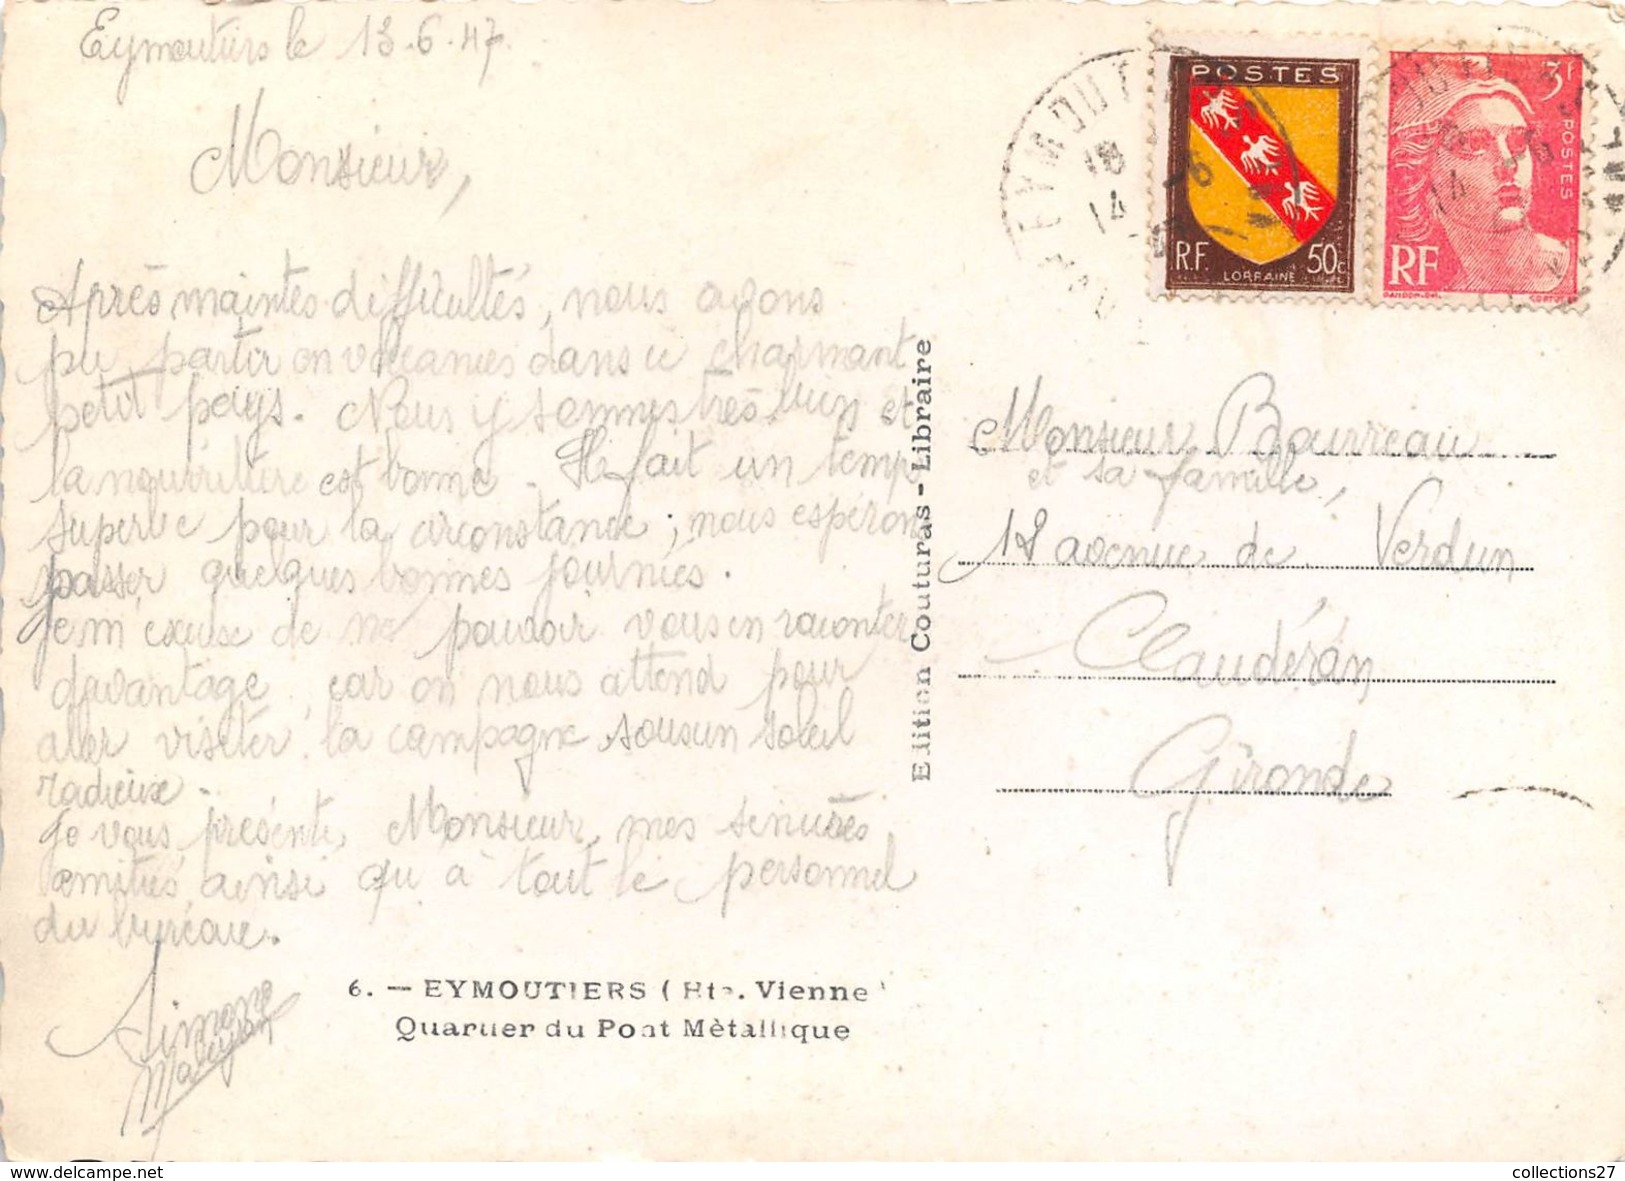 Eymoutiers le 13.6.47.
Monsieur,
Après maintes difficultés, nous avons
pu partir en vacances dans ce charmant
petit pays. Nous y sommes très bien et
la nourriture est bonne. Il fait un temp
superbe pour la circonstance; nous espérons
passer quelques bonnes journées.
Je m'excuse de ne pouvoir vous en raconter
davantage, car on nous attend pour
aller visiter la campagne sous un soleil
radieux.
Je vous présente, Monsieur, mes sincères
amitiés, ainsi qu'à tout le personnel
du bureau.
Simone
6. — EYMOUTIERS (Hte. Vienne)
Quartier du Pont Mètallique
Edition Couturas - Librairie
POSTES
R.F.
50c
LORRAINE
3f
POSTES
RF
EYMOUT
18
14 -6
Monsieur Bourreau
et sa famille,
18 avenue de Verdun
Claudéran
Gironde
www.delcampe.net
collections27